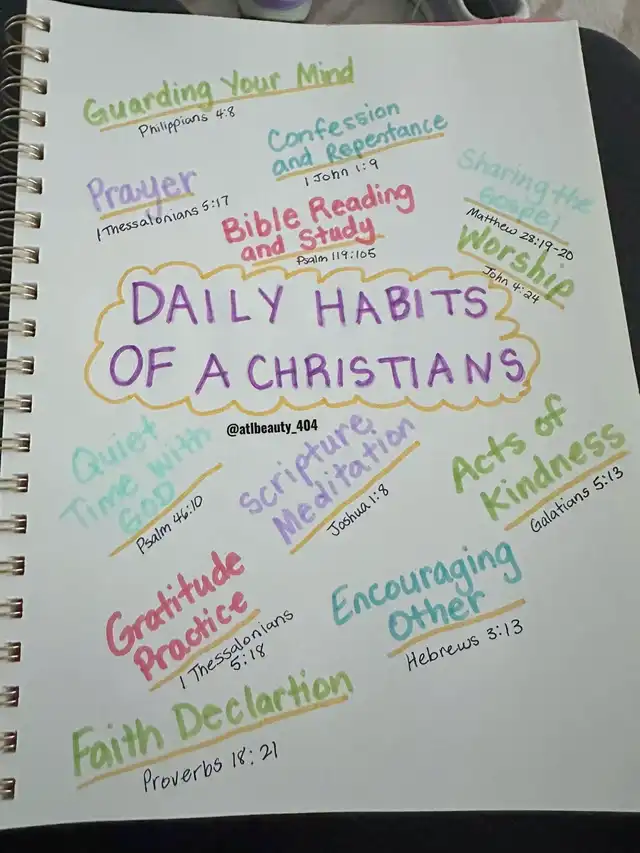 Guarding Your Mind
Philippians 4:8
Confession
and Repentance
1 John 1:9
Prayer
1 Thessalonians 5:17
Sharing the
Gospel
Matthew 28:19-20
Bible Reading
and Study
Psalm 119:105
Worship
John 4:24
DAILY HABITS
OF A CHRISTIANS
@atlbeauty_404
Quiet
Time with
GOD
Psalm 46:10
Scripture
Meditation
Joshua 1:8
Acts of
Kindness
Galatians 5:13
Gratitude
Practice
1 Thessalonians
5:18
Encouraging
Other
Hebrews 3:13
Faith Declartion
Proverbs 18:21